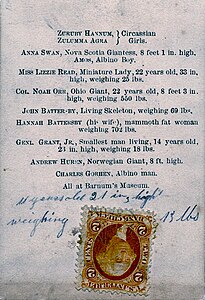 ZURUBY HANNUM, } Circassian
ZULUMMA AGRA } Girls.
ANNA SWAN, Nova Scotia Giantess, 8 feet 1 in. high.
AMOS, Albino Boy.
MISS LIZZIE READ, Miniature Lady, 22 years old, 33 in. high, weighs 25 lbs.
COL. NOAH ORR, Ohio Giant, 22 years old, 8 feet 3 in. high, weighing 550 lbs.
JOHN BATTERSBY, Living Skeleton, weighing 69 lbs.
HANNAH BATTERSBY (his wife), mammoth fat woman weighing 702 lbs.
GENL. GRANT, JR., Smallest man living, 14 years old, 23 in. high, weighing 18 lbs.
ANDREW HURIN, Norwegian Giant, 8 ft. high.
CHARLES GORHEN, Albino man.
All at Barnum's Museum.
years old 21 in high
weighing 13 lbs
2 2